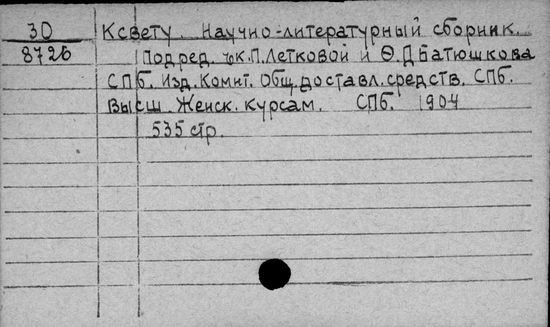 30 Ксвету. Научно-литературный сборник.
8726 Подред. Ек.П.Летковой и Ѳ.Д.Батюшкова
СПб. Изд. Комит. Общ. доставл. средств. СПб.
Высш. Женск. Курсам. СПб. 1904
535 стр.